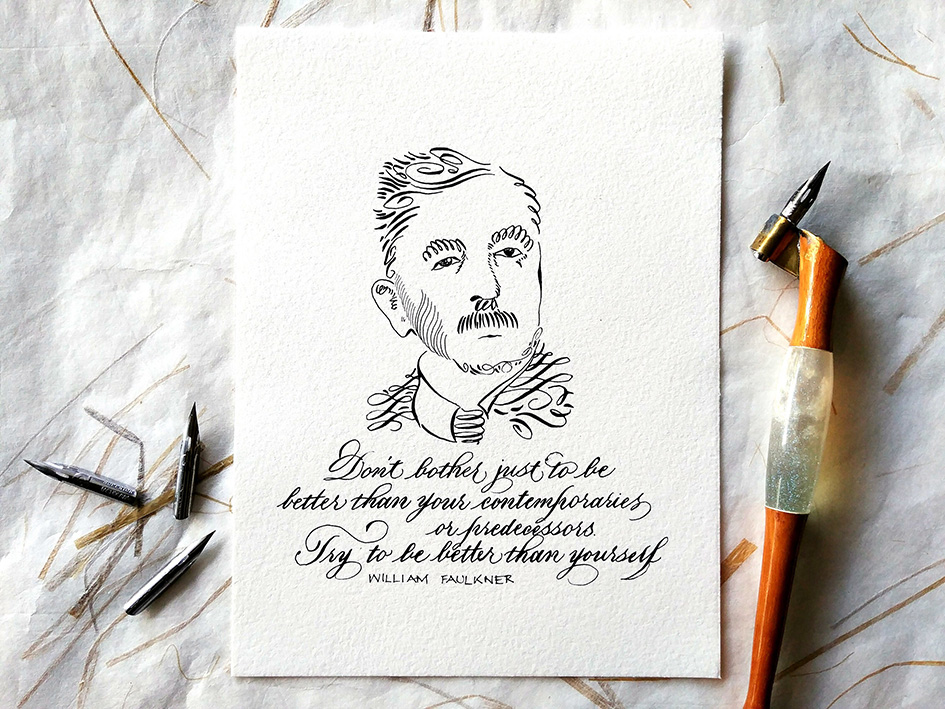 Don't bother just to be
better than your contemporaries
or predecessors.
Try to be better than yourself
WILLIAM FAULKNER